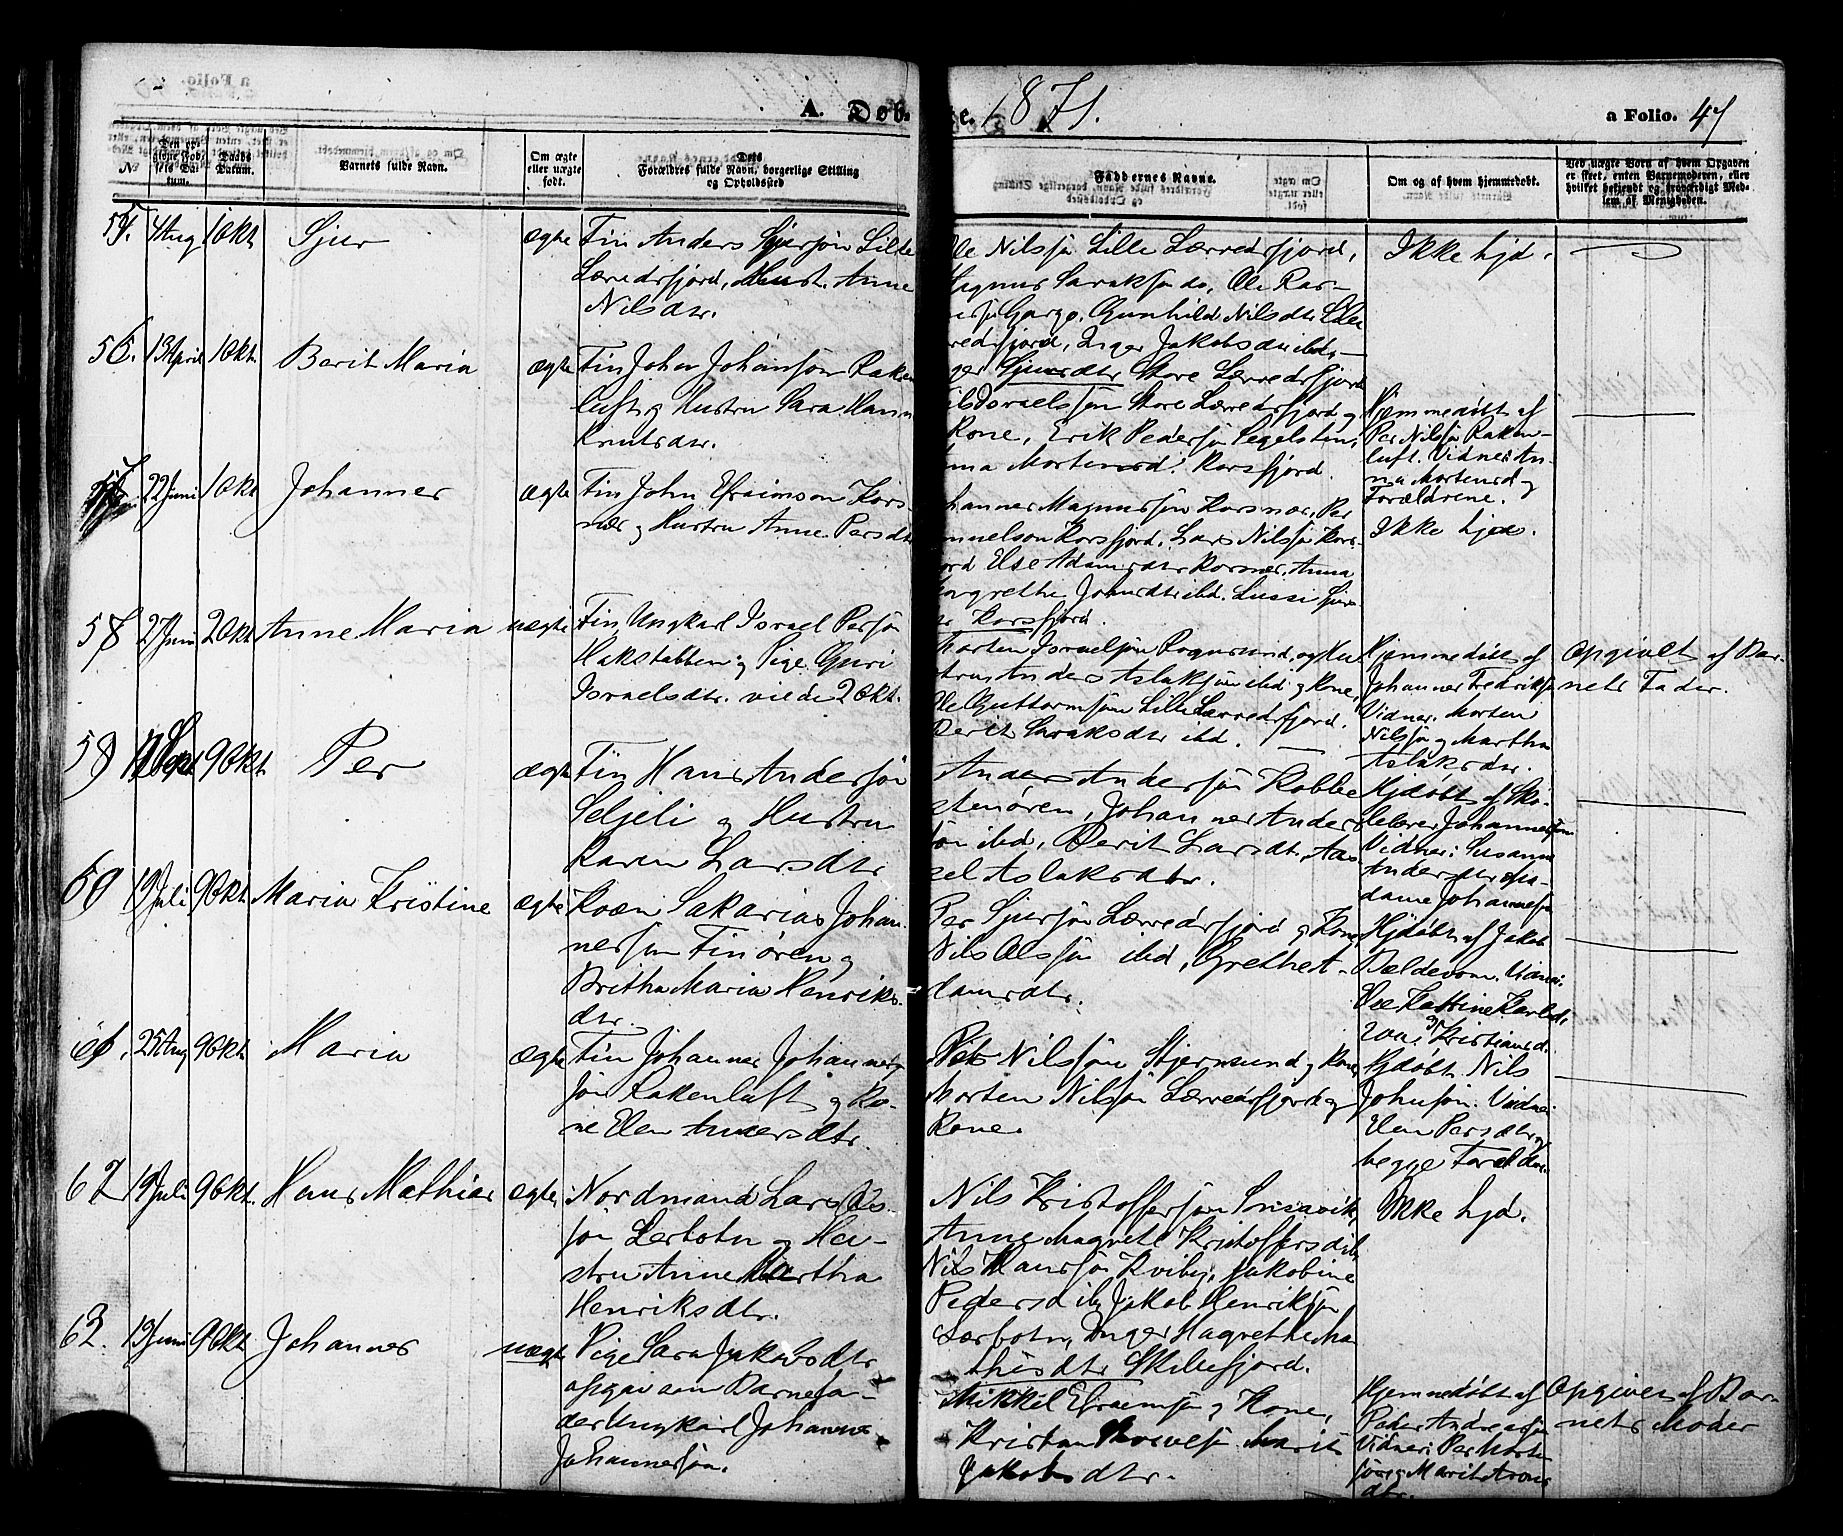 A. Døb
e. 1871.
a Folio. 47
№
Dåbs Datum.
Barnets fulde Navn.
Om ægte eller uægte født.
Dets Forældres fulde Navn, borgerlige Stilling og Opholdssted
Faddernes Navne.
Om og af hvem hjemmedøbt.
Ved uægte Børn af hvem Opgaven er skeet, enten Barnemoderen, eller hvilket bekjendt og troværdigt Medlem af Menigheden.
55. 4 Aug 1 Okt Sjur ægte Fin Anders Sjursön Lille
Lerredsfjord, Hust. Anne
Nilsdtr.
Ole Nilssön Lille Lerredsfjord,
Magnus Saraksön do, Ole
Gargo. Gunhild Nilsdtr Lille
redsfjord, Inger Jakobsdtr ibd,
Sjursdtr Store Lerredsfjord
Ikke hjd.
56. 13 April 1 Okt. Berit Maria ægte Fin John Johansön Raken
luft og Hustru Sara
Knutsdtr.
Store Lerredsfjord og
Kone, Erik Pedersön Segelsten,
Mortensd. Korsfjord.
Hjemmedøbt af
Per Nilssön Raken-
luft. Vidner: An-
na Mortensd og
Forældrene.
57. 22 Juni 1 Okt Johannes ægte Fin John Efraimson Kors-
nær og Hustru Anne Persdtr
hannes Magnussön Korsnær, Per
Korsfjord, Lars Nilssön Kors-
jord Else Adamsdtr Korsnær, Anna
grethe Johnsdtr ibd. Lussi Sjurs
Korsfjord.
Ikke hjd.
58 27 Juni 2 Okt Anne Maria uægte Fin Ungkarl Israel Persön
Hakstabben og Pige Guri
Israelsdtr. viede 2 Okt.
Morten Israelsön Rognsund og Hu
stru Anders Aslaksön ibd og Kone,
Ole Guttormsön Lille Lerredsfjord.
Berit Saraksdtr ibd.
Hjemmedøbt af
Johannes Fredriksön
Vidner: Morten
Nilssön og Martha
Aslaksdtr.
Opgivet af Bar-
nets Fader.
59 Sept 9 Okt. Per ægte Fin Hans Andersön
Seljeli og Hustru
Karen Larsdtr
Anders Andersön Kobbe
Johannes Anders
sön ibd, Berit Larsdtr,
Aslaksdtr.
Hjdøbt af Sko-
lelærer Johannessön
Vidner: Susanne
Andersdtr og
Johannessön
60 19 Juli 9 Okt. Maria Kristine ægte Kvæn Sakarias Johan-
nessen Finören og
Britha Maria Henriks-
dtr.
Per Sjursön Lerredsfjord og Kone
Nils Olssön ibd, Grethe A-
damsdtr.
Hjdøbt af Jakob
Bældevom. Vidner:
Katrine Karlsd.
og Kristiansd.
61. 25 Aug 9 Okt. Maria ægte Fin Johannes Johannes-
sön Rakenluft og Ko-
ne Elen Andersdtr.
Nilssön Stjernsund og Kone
Morten Nilssön Lerredsfjord og
Kone.
Hjdøbt. Nils
Johnsön. Vidner:
Elen Persdtr og
begge Forældre.
62 19 Juli 9 Okt. Hans Mathias ægte Nordmand Lars Ols-
sön Lerbotn og Hu-
stru Anne Martha
Henriksdtr.
Nils Kristoffersön
Anne Magrete Kristoffersd ib,
Nils Hanssön Kviby, Jakobine
Pedersd ib, Jakob Henriksön
Lerbotn, Inger Magrethe Ma
thisdtr Skillefjord.
Ikke hjd.
63. 19 Juni 9 Okt Johannes uægte Pige Sara Jakobsdtr
opgav som Barnefa-
der Ungkarl Johannes
Johannessön.
Mikkel Efraimsön og Kone,
Kristen Marit
Jakobsdtr.
Hjemmedøbt af
Peder Andreassön
Vidner: Per Morten
sön og Marit Arons
dtr.
Opgivet af Bar-
nets Moder